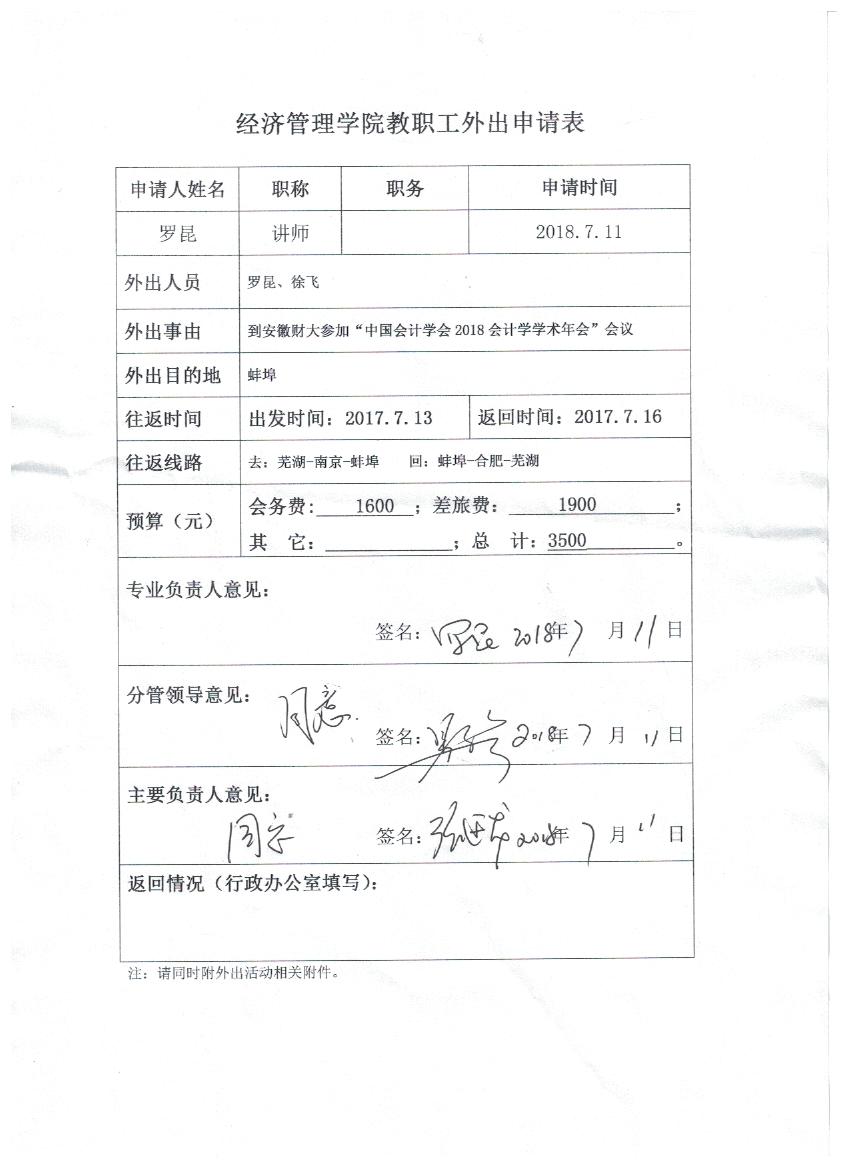 经济管理学院教职工外出申请表
申请人姓名 职称 职务 申请时间
罗昆 讲师 2018.7.11
外出人员 罗昆、徐飞
外出事由 到安徽财大参加“中国会计学会2018会计学学术年会”会议
外出目的地 蚌埠
往返时间 出发时间：2017.7.13 返回时间：2017.7.16
往返线路 去：芜湖-南京-蚌埠 回：蚌埠-合肥-芜湖
预算（元） 会务费：1600；差旅费：1900；
其 它：；总 计：3500。
专业负责人意见：
签名：罗昆 2018年7月11日
分管领导意见：
同意.
签名： 2018年7月11日
主要负责人意见：
同意
签名： 2018年7月11日
返回情况（行政办公室填写）：
注：请同时附外出活动相关附件。